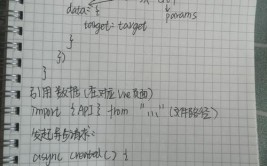 data: {
params
target: target
}
})
引用数据(在对应Vue页面)
import {API} from "..." (文件路径)
发起异步请求:
async created() {